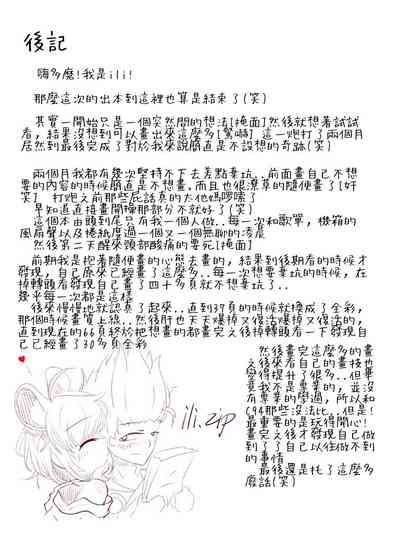 後記
嗨多魔!我是ili!
那麼這次的出本到這裡也算是結束了(笑)
其實一開始只是一個突然間的想法[掩面]然後就想著試試
看,結果沒想到可以畫出來這麼多[驚嚇] 這一炮打了兩個月
居然到最後完成了對於我來說簡直是不設想的奇跡(笑)
兩個月我都有幾次堅持不下去差點棄坑..前面畫自己不想
要的內容的時候簡直是不想畫,而且也很潦草的隨便畫了[奸
笑] 打炮之前那些屁話真的太他媽啰嗦了
早知道直接畫開操那部分不就好了(笑)
這個本由頭到尾只有我一個人做..每一次和歌單,機箱的
風扇聲以及捲紙度過一個又一個無聊的凌晨
然後第二天醒來頸部酸痛的要死[掩面]
前期我是抱著隨便畫的心態去畫的,結果到後期看的時候才
發現,自己原來已經畫了這麼多..每一次想要棄坑的時候,在
掉轉頭看發現自己畫了四十多頁就不想棄坑了..
幾乎每一次都是這樣
後來慢慢地就認真了起來..直到37頁的時候就換成了全彩,
那個時候畫質上線..然後肝也天天爆掉又復活爆掉又復活的,
直到現在的66頁終於把想畫的都畫完之後掉轉頭看一下發現自
己已經畫了30多頁全彩
然後畫完這麼多的畫
之後來看自己的畫技也
覺得提升了很多..但畢
竟我不是專業的,並沒
有專業的學過,所以和
C94那些沒法比..但是!
最重要的是玩得開心!
畫完之後才發現自己做
到了了自己以往做不到
的事情
最後還是托了這麼多
廢話(笑)
ili.zip